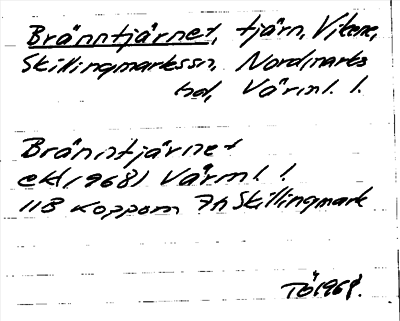 Bränntjärnet, tjärn, Vitene,
Skillingmarkssn, Nordmarks
hd, Värml. l.
Bränntjärnet
ek (1968) Värml. l.
11B Koppom 7h Skillingmark
TÖ 1968.